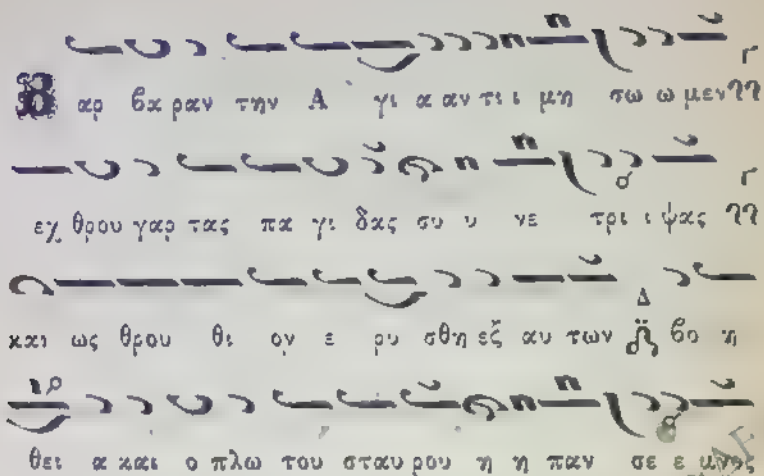 Β αρ βα ραν την Α γι α αν τι ι μη σω ω μεν
εχ θρου γαρ τας πα γι δας συ υ νε τρι ι ψας
και ως θρου θι ον ε ρυ σθη εξ αυ των Δ βο η
θει α και ο πλω του σταυ ρου η η παν σε ε μνος